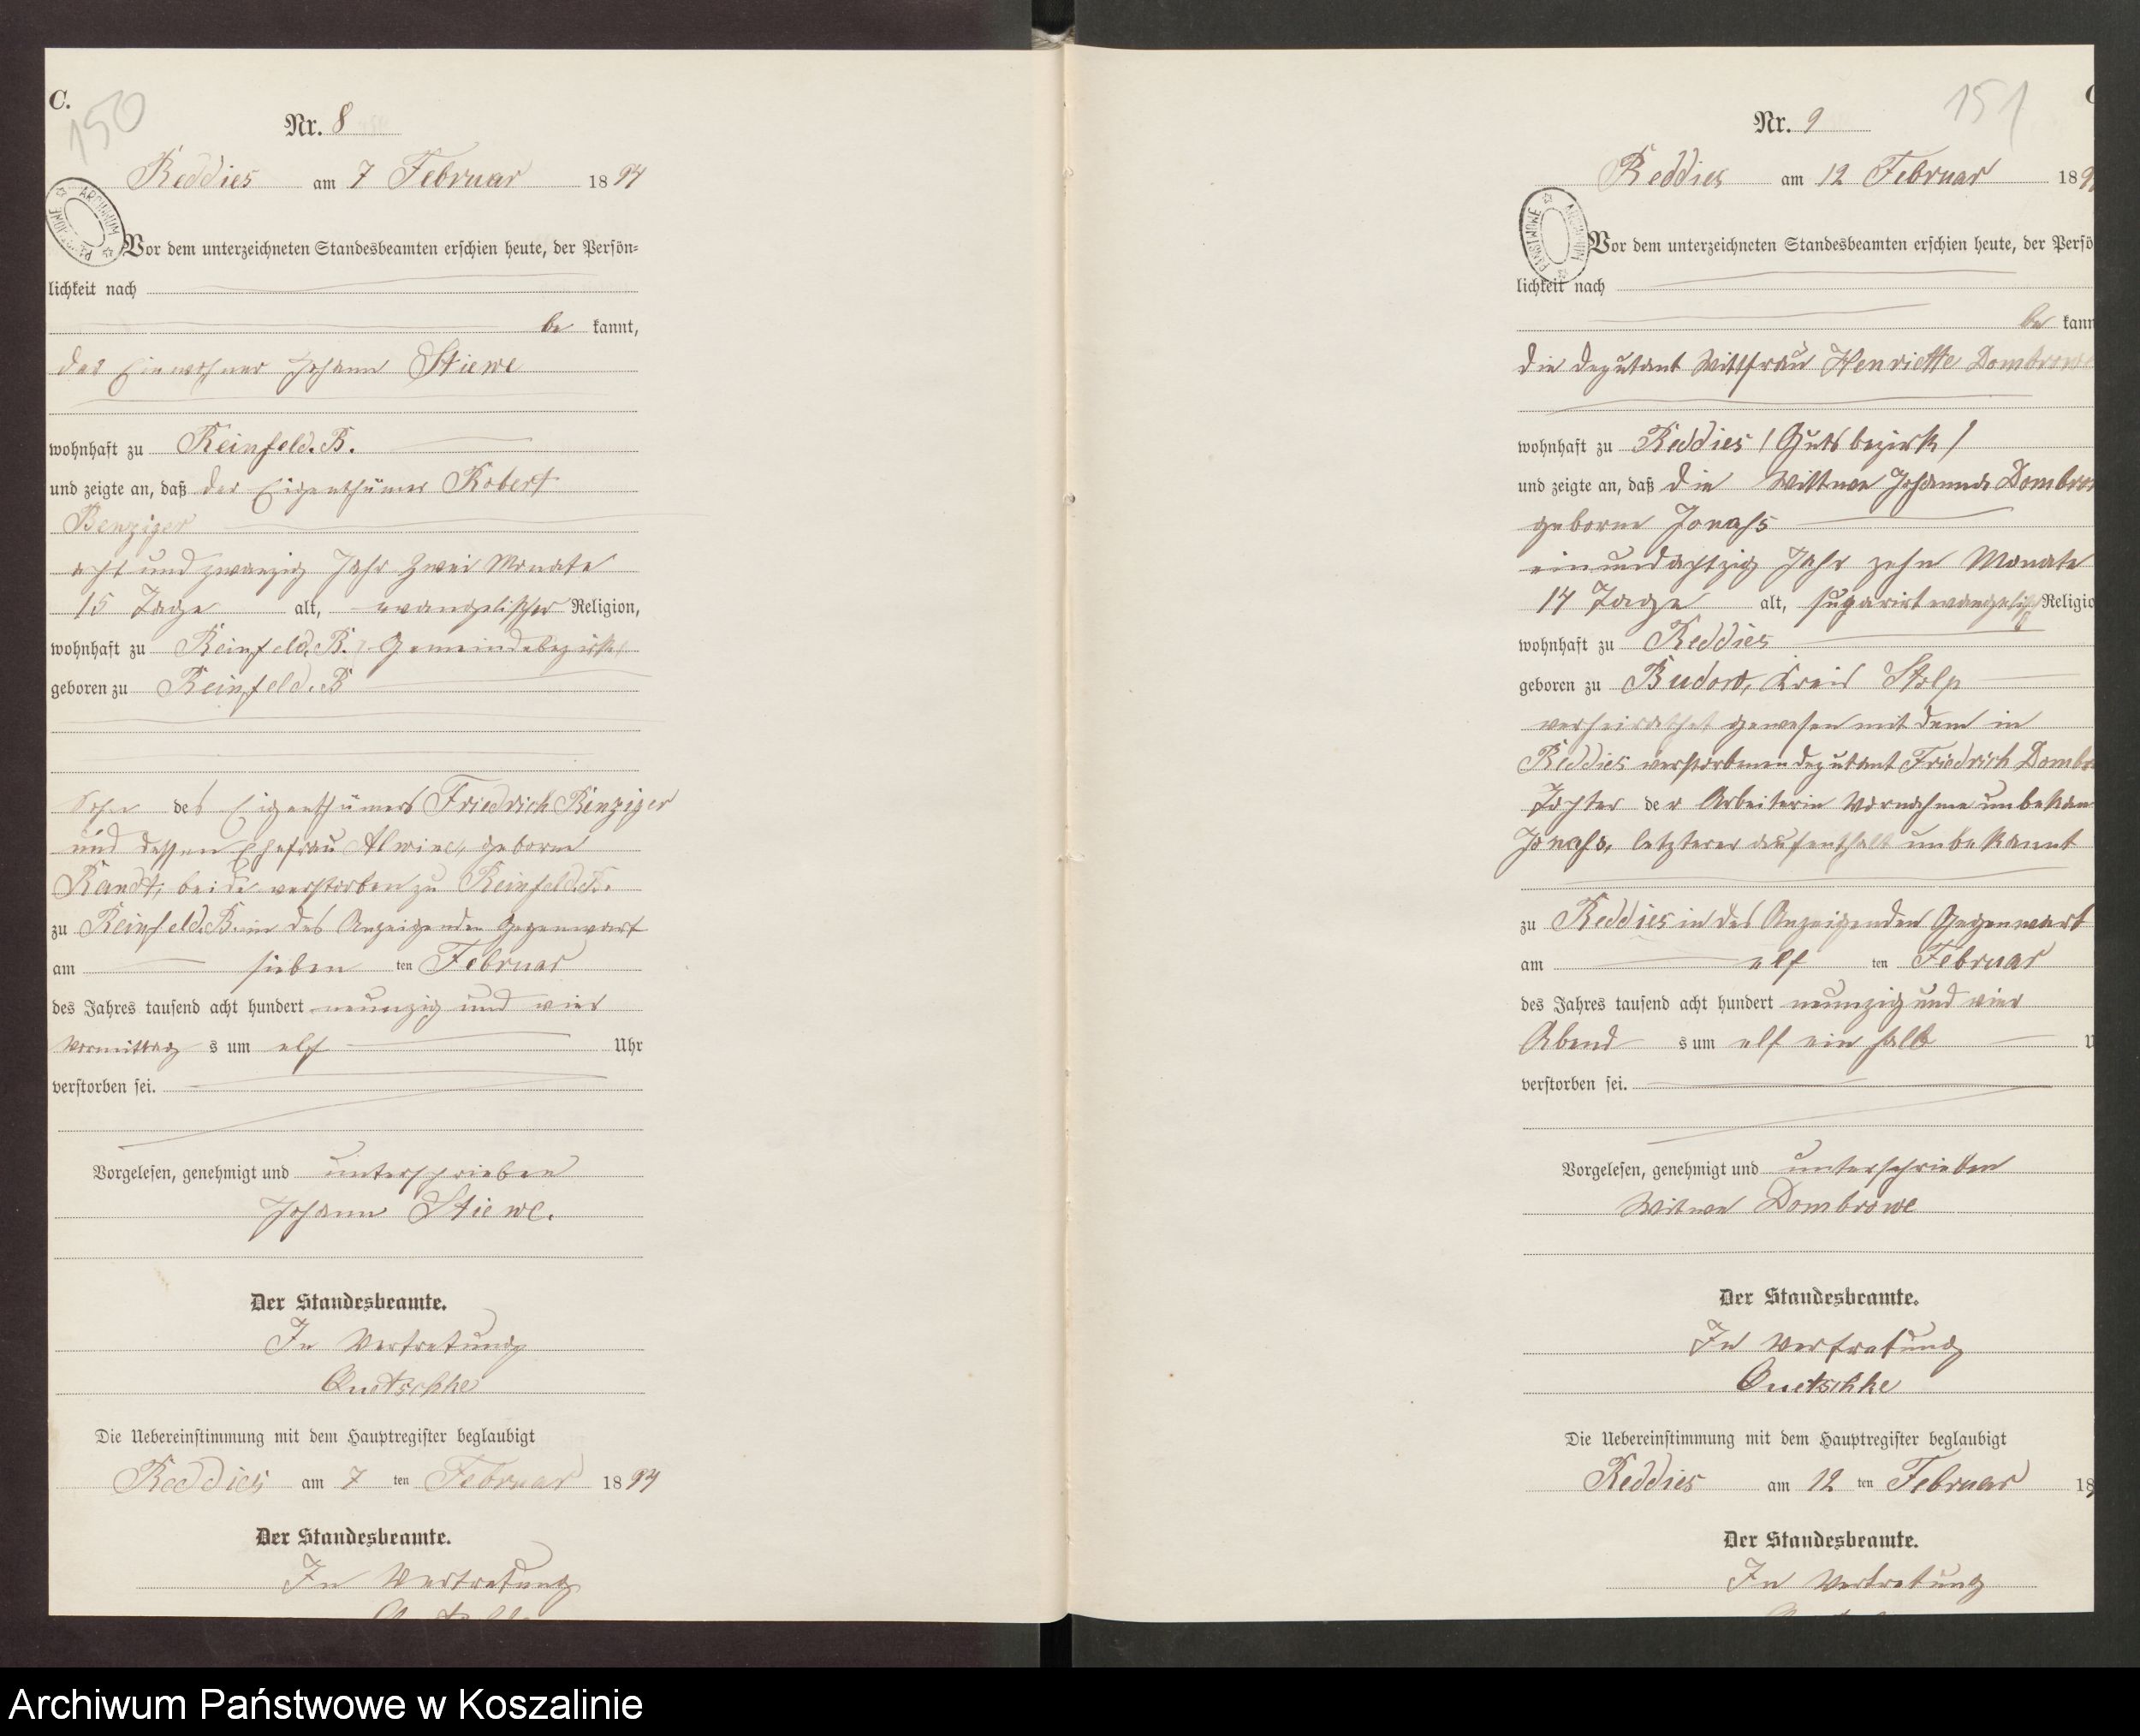 C.
150
Nr. 8
Reddies am 7 Februar 1894
ARCHIWUM PAŃSTWOWE
Vor dem unterzeichneten Standesbeamten erschien heute, der Persön-
lichkeit nach
be kannt,
der Einwohner Johann Stiewe
wohnhaft zu Reinfeld. B.
und zeigte an, daß der Eigenthümer Robert
Benziger
acht und zwanzig Jahr zwei Monate
15 Tage alt, evangelischer Religion,
wohnhaft zu Reinfeld. B. / Gemeindebezirk /
geboren zu Reinfeld. B
Sohn des Eigenthümers Friedrich Benziger
und dessen Ehefrau Alwine, geborne
Randt, beide verstorben zu Reinfeld. B.
zu Reinfeld. B. in des Anzeigenden Gegenwart
am sieben ten Februar
des Jahres tausend acht hundert neunzig und vier
Vormittag s um elf Uhr
verstorben sei.
Vorgelesen, genehmigt und unterschrieben
Johann Stiewe.
Der Standesbeamte.
In Vertretung
Quetschke
Die Uebereinstimmung mit dem Hauptregister beglaubigt
Reddies am 7 ten Februar 1894
Der Standesbeamte.
In Vertretung
151
Nr. 9
Reddies am 12 Februar 189
ARCHIWUM PAŃSTWOWE
Vor dem unterzeichneten Standesbeamten erschien heute, der Persö
lichkeit nach
be kann
die Deputant Wittfrau Henriette Dombrowe
wohnhaft zu Reddies / Gutsbezirk /
und zeigte an, daß die Wittwe Johanna Dombrow
geborne Jonass
einundachtzig Jahr zehn Monate
14 Tage alt, evangelisch Religio
wohnhaft zu Reddies
geboren zu Budow, Kreis Stolp
verheirathet gewesen mit dem in
Reddies verstorbenen Deputant Friedrich Dombro
Tochter der Arbeiterin Vornahme unbekan
Jonass, letzterer aufenthalt unbekannt
zu Reddies in des Anzeigenden Gegenwart
am elf ten Februar
des Jahres tausend acht hundert neunzig und vier
Abend s um elf ein halb U
verstorben sei.
Vorgelesen, genehmigt und unterschrieben
Witwe Dombrowe
Der Standesbeamte.
In Vertretung
Quetschke
Die Uebereinstimmung mit dem Hauptregister beglaubigt
Reddies am 12 ten Februar 18
Der Standesbeamte.
In Vertretung
Archiwum Państwowe w Koszalinie